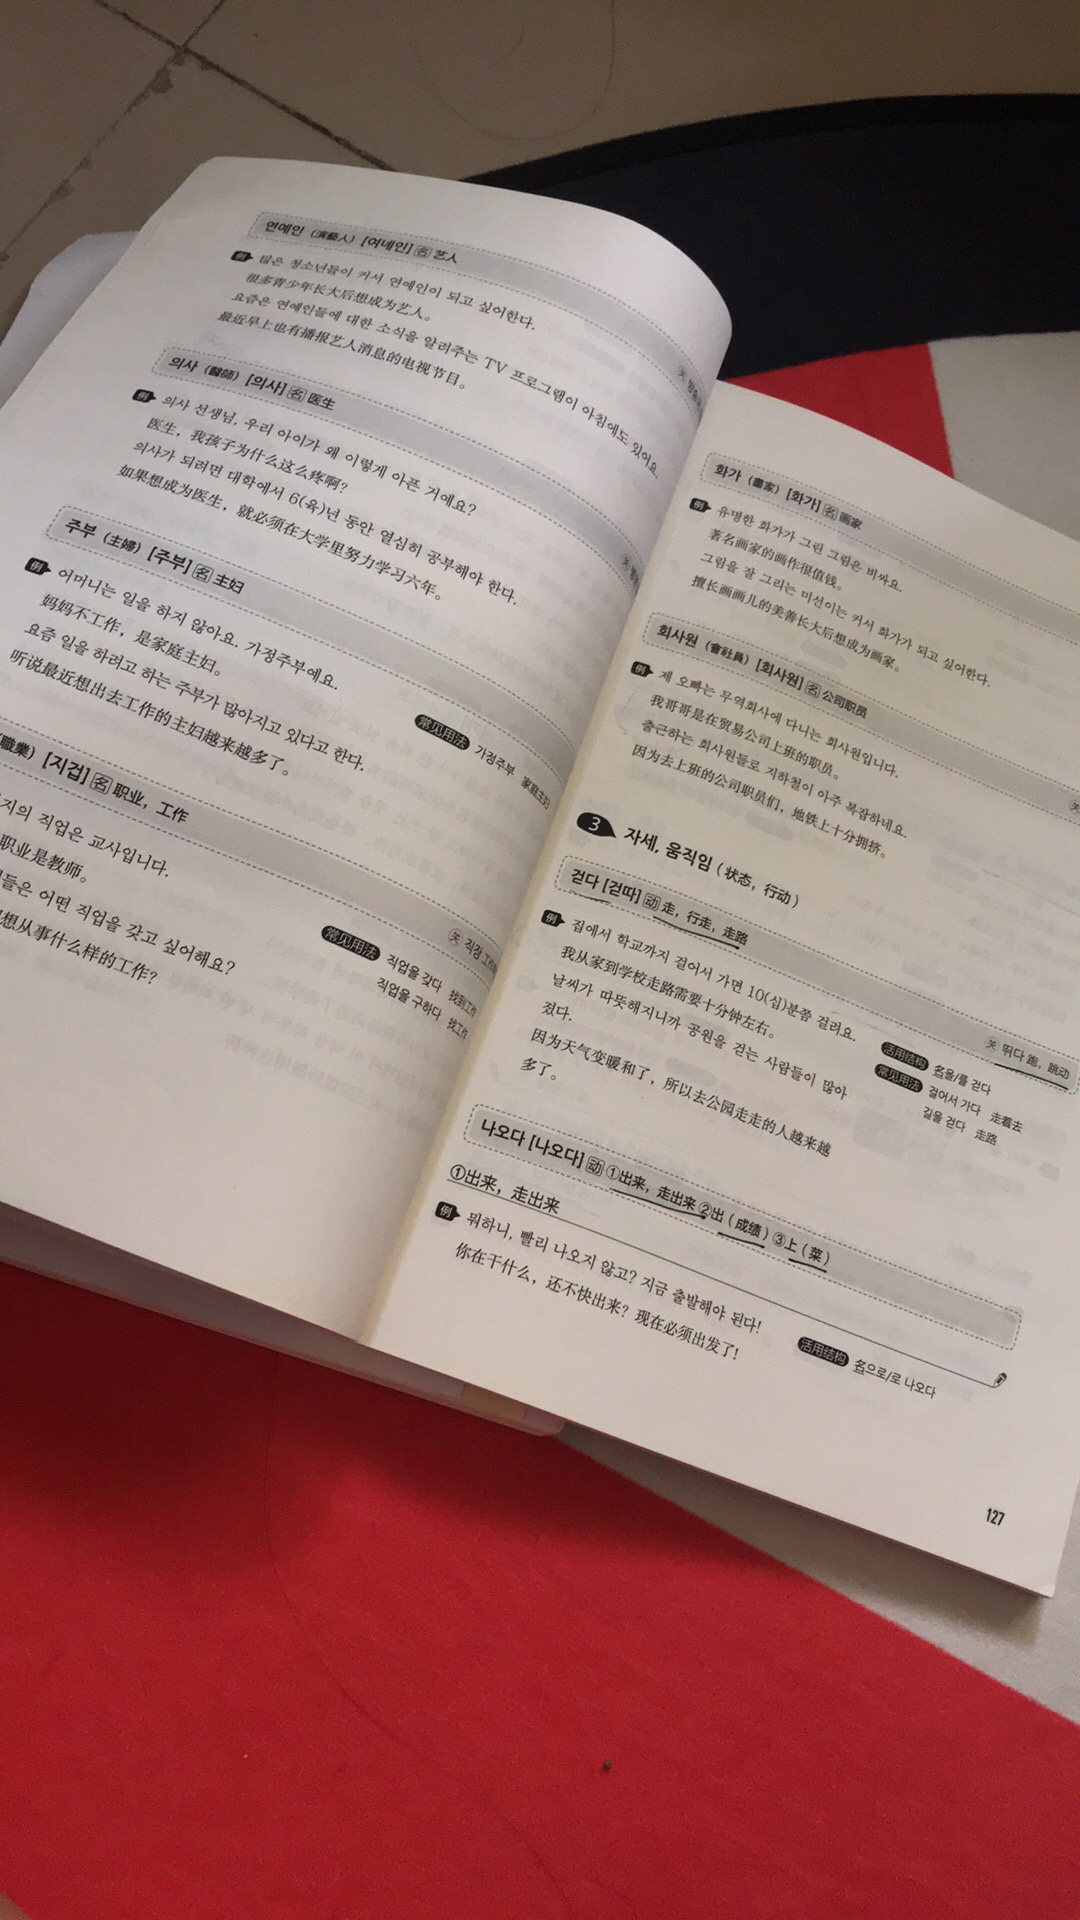 연예인 (演藝人) [여네인] 名 艺人
例 많은 청소년들이 커서 연예인이 되고 싶어한다.
很多青少年长大后想成为艺人。
요즘은 연예인들에 대한 소식을 알려주는 TV 프로그램이 아침에도 있어요.
最近早上也有播报艺人消息的电视节目。
关
의사 (醫師) [의사] 名 医生
例 의사 선생님, 우리 아이가 왜 이렇게 아픈 거예요?
医生，我孩子为什么这么疼啊？
의사가 되려면 대학에서 6(육)년 동안 열심히 공부해야 한다.
如果想成为医生，就必须在大学里努力学习六年。
关
주부 (主婦) [주부] 名 主妇
例 어머니는 일을 하지 않아요. 가정주부예요.
妈妈不工作，是家庭主妇。
요즘 일을 하려고 하는 주부가 많아지고 있다고 한다.
听说最近想出去工作的主妇越来越多了。
常见用法 가정주부 家庭主妇
職業) [지겁] 名 职业，工作
지의 직업은 교사입니다.
职业是教师。
들은 어떤 직업을 갖고 싶어해요?
想从事什么样的工作？
关 직장
常见用法 직업을 갖다 找到工作
직업을 구하다 找工作
화가 (畫家) [화가] 名 画家
例 유명한 화가가 그린 그림은 비싸요.
著名画家的画作很值钱。
그림을 잘 그리는 미선이는 커서 화가가 되고 싶어한다.
擅长画画儿的美善长大后想成为画家。
회사원 (會社員) [회사원] 名 公司职员
例 제 오빠는 무역회사에 다니는 회사원입니다.
我哥哥是在贸易公司上班的职员。
출근하는 회사원들로 지하철이 아주 복잡하네요.
因为去上班的公司职员们，地铁上十分拥挤。
关
3 자세, 움직임 (状态，行动)
걷다 [걷따] 动 走，行走，走路
关 뛰다 跑，跳动
例 집에서 학교까지 걸어서 가면 10(십)분쯤 걸려요.
我从家到学校走路需要十分钟左右。
날씨가 따뜻해지니까 공원을 걷는 사람들이 많아
졌다.
因为天气变暖和了，所以去公园走走的人越来越
多了。
活用结构 名을/를 걷다
常见用法 걸어서 가다 走着去
길을 걷다 走路
나오다 [나오다] 动 ①出来，走出来 ②出（成绩）③上（菜）
①出来，走出来
例 뭐하니, 빨리 나오지 않고? 지금 출발해야 된다!
你在干什么，还不快出来？现在必须出发了！
活用结构 名으로/로 나오다
127